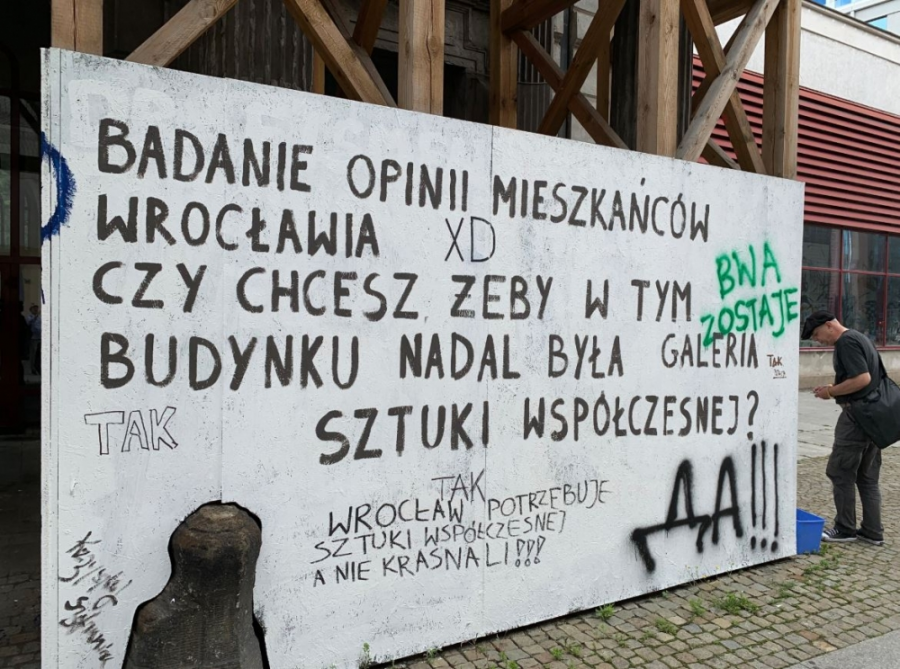 BADANIE OPINII MIESZKAŃCÓW
WROCŁAWIA XD
CZY CHCESZ ŻEBY W TYM
BUDYNKU NADAL BYŁA GALERIA
SZTUKI WSPÓŁCZESNEJ?
BWA
ZOSTAJE
TAK
TAK
TAK
WROCŁAW POTRZEBUJE
SZTUKI WSPÓŁCZESNEJ
A NIE KRASNALI!!!
ДА!!!